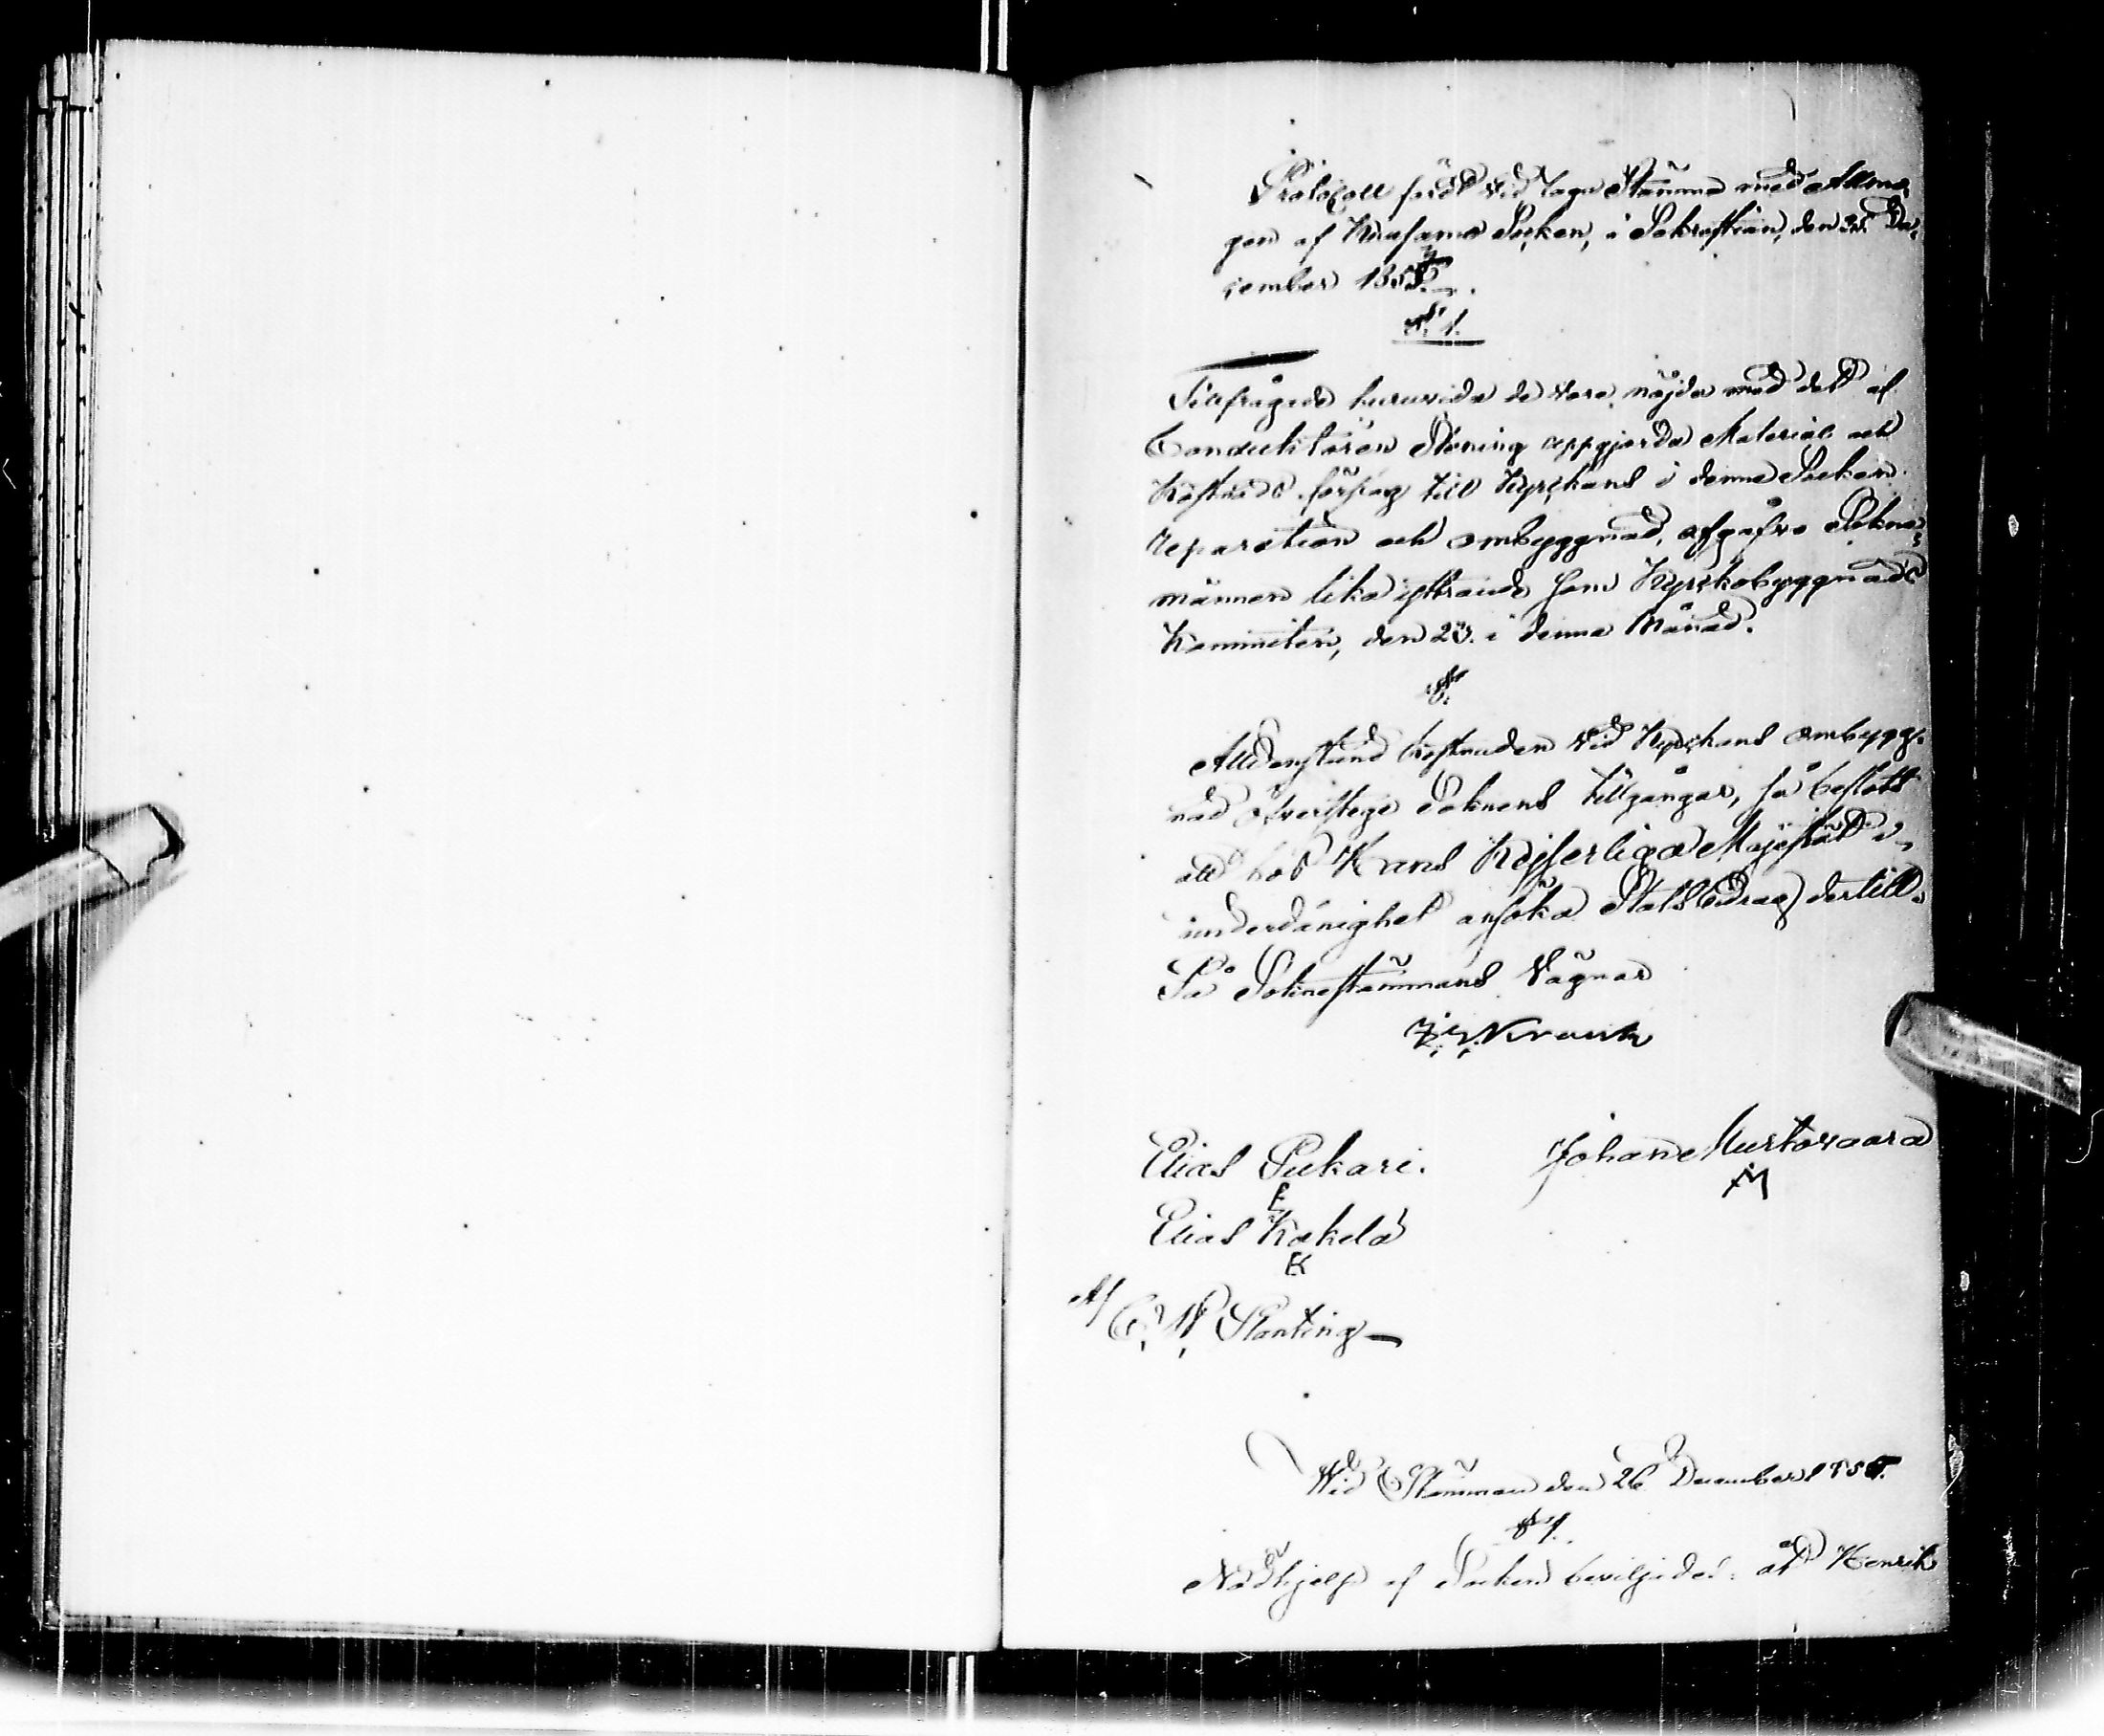 Protocoll fördt vid laga Stämma med Allmo,
gen af Kuusamo Socken, i Sakristian, den De,
cember 185
§ 1.
Tillfrågade huruvida de vore nöjda med det af
Conduktören uppgjorda Material och
Kostnads förslag till Kyrkans i denna Socken
reparation och ombyggnad, afgåfvo Sokne,
männen lika yttrande som Kyrkobyggnads
Kommitén, den 23. i denna Månad.
§.
Alldenstund kostnaden vid Kyrkans ombygg,
nad öfverstege Soknens tillgångar, så beslöts
att hos Hans Kejserliga Majestät i,
underdånighet ansöka Statsbidrag dertill.
På Soknestämmans Vägnar
Elias Pukari. Johan Murtovaara
E M
Elias Kakela
EK
Af
C. W. Planting
Wid Stämman den 26 December 185
§ 1.
Nödhjelp af Socken beviljades: åt Henrik